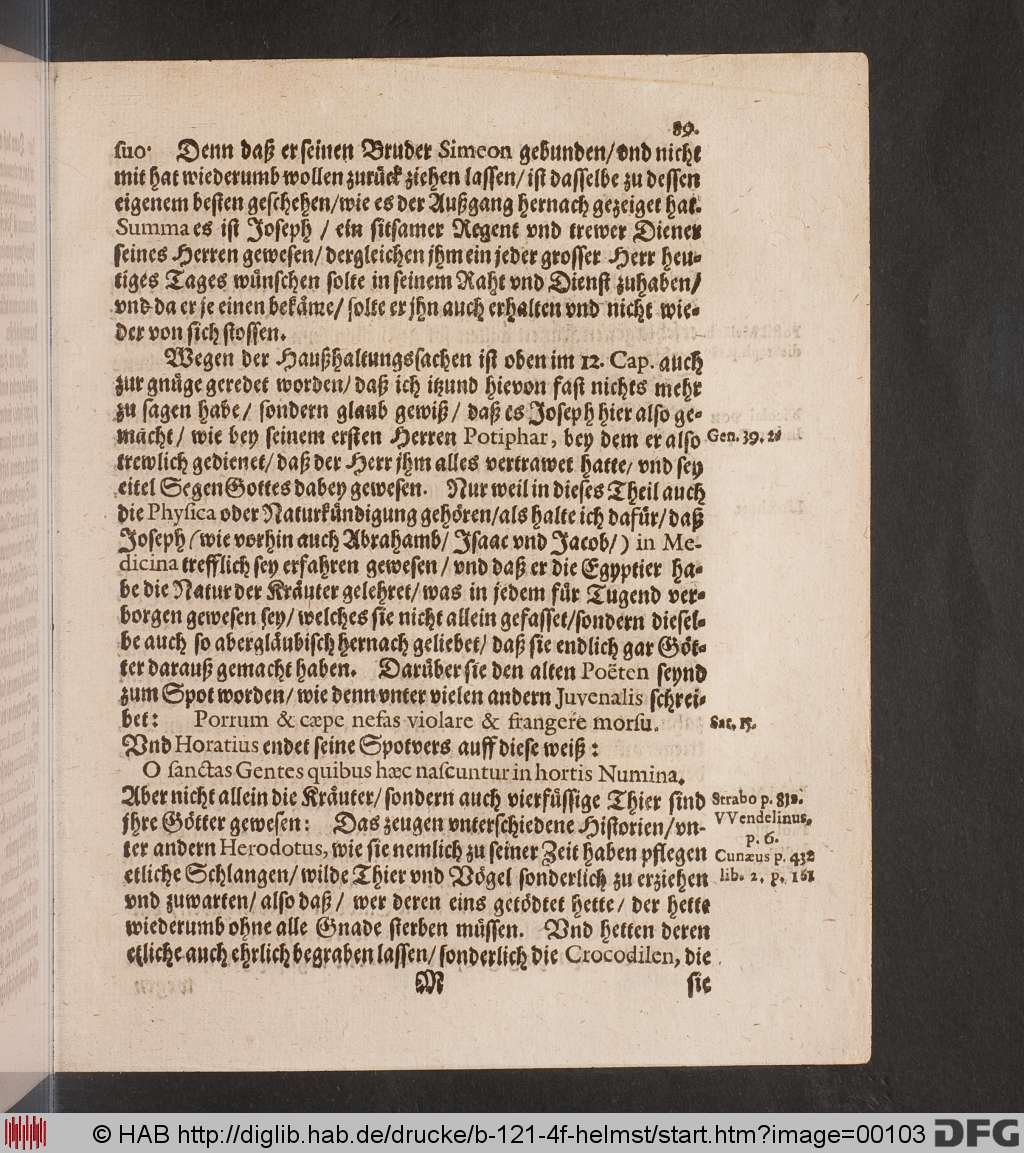 89.
suo. Denn daß er seinen Bruder Simeon gebunden/vnd nicht
mit hat wiederumb wollen zurück ziehen lassen/ ist dasselbe zu dessen
eigenem besten geschehen/wie es der Außgang hernach gezeiget hat.
Summa es ist Joseph / ein sitsamer Regent vnd trewer Diener
seines Herren gewesen/ dergleichen jhm ein jeder grosser Herr heu-
tiges Tages wünschen solte in seinem Raht vnd Dienst zuhaben/
vnd da er je einen bekäme/ solte er jhn auch erhalten vnd nicht wie-
der von sich stossen.
Wegen der Haußhaltungssachen ist oben im 12. Cap. auch
zur gnüge geredet worden/ daß ich itzund hievon fast nichts mehr
zu sagen habe/ sondern glaub gewiß/ daß es Joseph hier also ge-
macht/ wie bey seinem ersten Herren Potiphar, bey dem er also Gen. 39. 2.
trewlich gedienet/ daß der Herr jhm alles vertrawet hatte/ vnd sey
eitel Segen Gottes dabey gewesen. Nur weil in dieses Theil auch
die Physica oder Naturkündigung gehören/als halte ich dafür/ daß
Joseph (wie vorhin auch Abrahamb/ Isaac vnd Jacob/) in Me-
dicina trefflich sey erfahren gewesen/ vnd daß er die Egyptier ha-
be die Natur der Kräuter gelehret/ was in jedem für Tugend ver-
borgen gewesen sey/ welches sie nicht allein gefasset/sondern diesel-
be auch so abergläubisch hernach geliebet/ daß sie endlich gar Göt-
ter darauß gemacht haben. Darüber sie den alten Poëten seynd
zum Spot worden/ wie denn vnter vielen andern Juvenalis schrei-
bet: Porrum & cæpe nefas violare & frangere morsu. Sat. 15.
Vnd Horatius endet seine Spotvers auff diese weiß:
O sanctas Gentes quibus hæc nascuntur in hortis Numina.
Aber nicht allein die Kräuter/ sondern auch vierfüssige Thier sind Strabo p. 812.
jhre Götter gewesen: Das zeugen vnterschiedene Historien/vn- VVendelinus,
p. 6.
ter andern Herodotus, wie sie nemlich zu seiner Zeit haben pflegen Cunæus p. 432
etliche Schlangen/ wilde Thier vnd Vögel sonderlich zu erziehen lib. 2. p. 161
vnd zuwarten/ also daß/ wer deren eins getödtet hette/ der hette
wiederumb ohne alle Gnade sterben müssen. Vnd hetten deren
etliche auch ehrlich begraben lassen/ sonderlich die Crocodilen, die
M sie
© HAB http://diglib.hab.de/drucke/b-121-4f-helmst/start.htm?image=00103 DFG